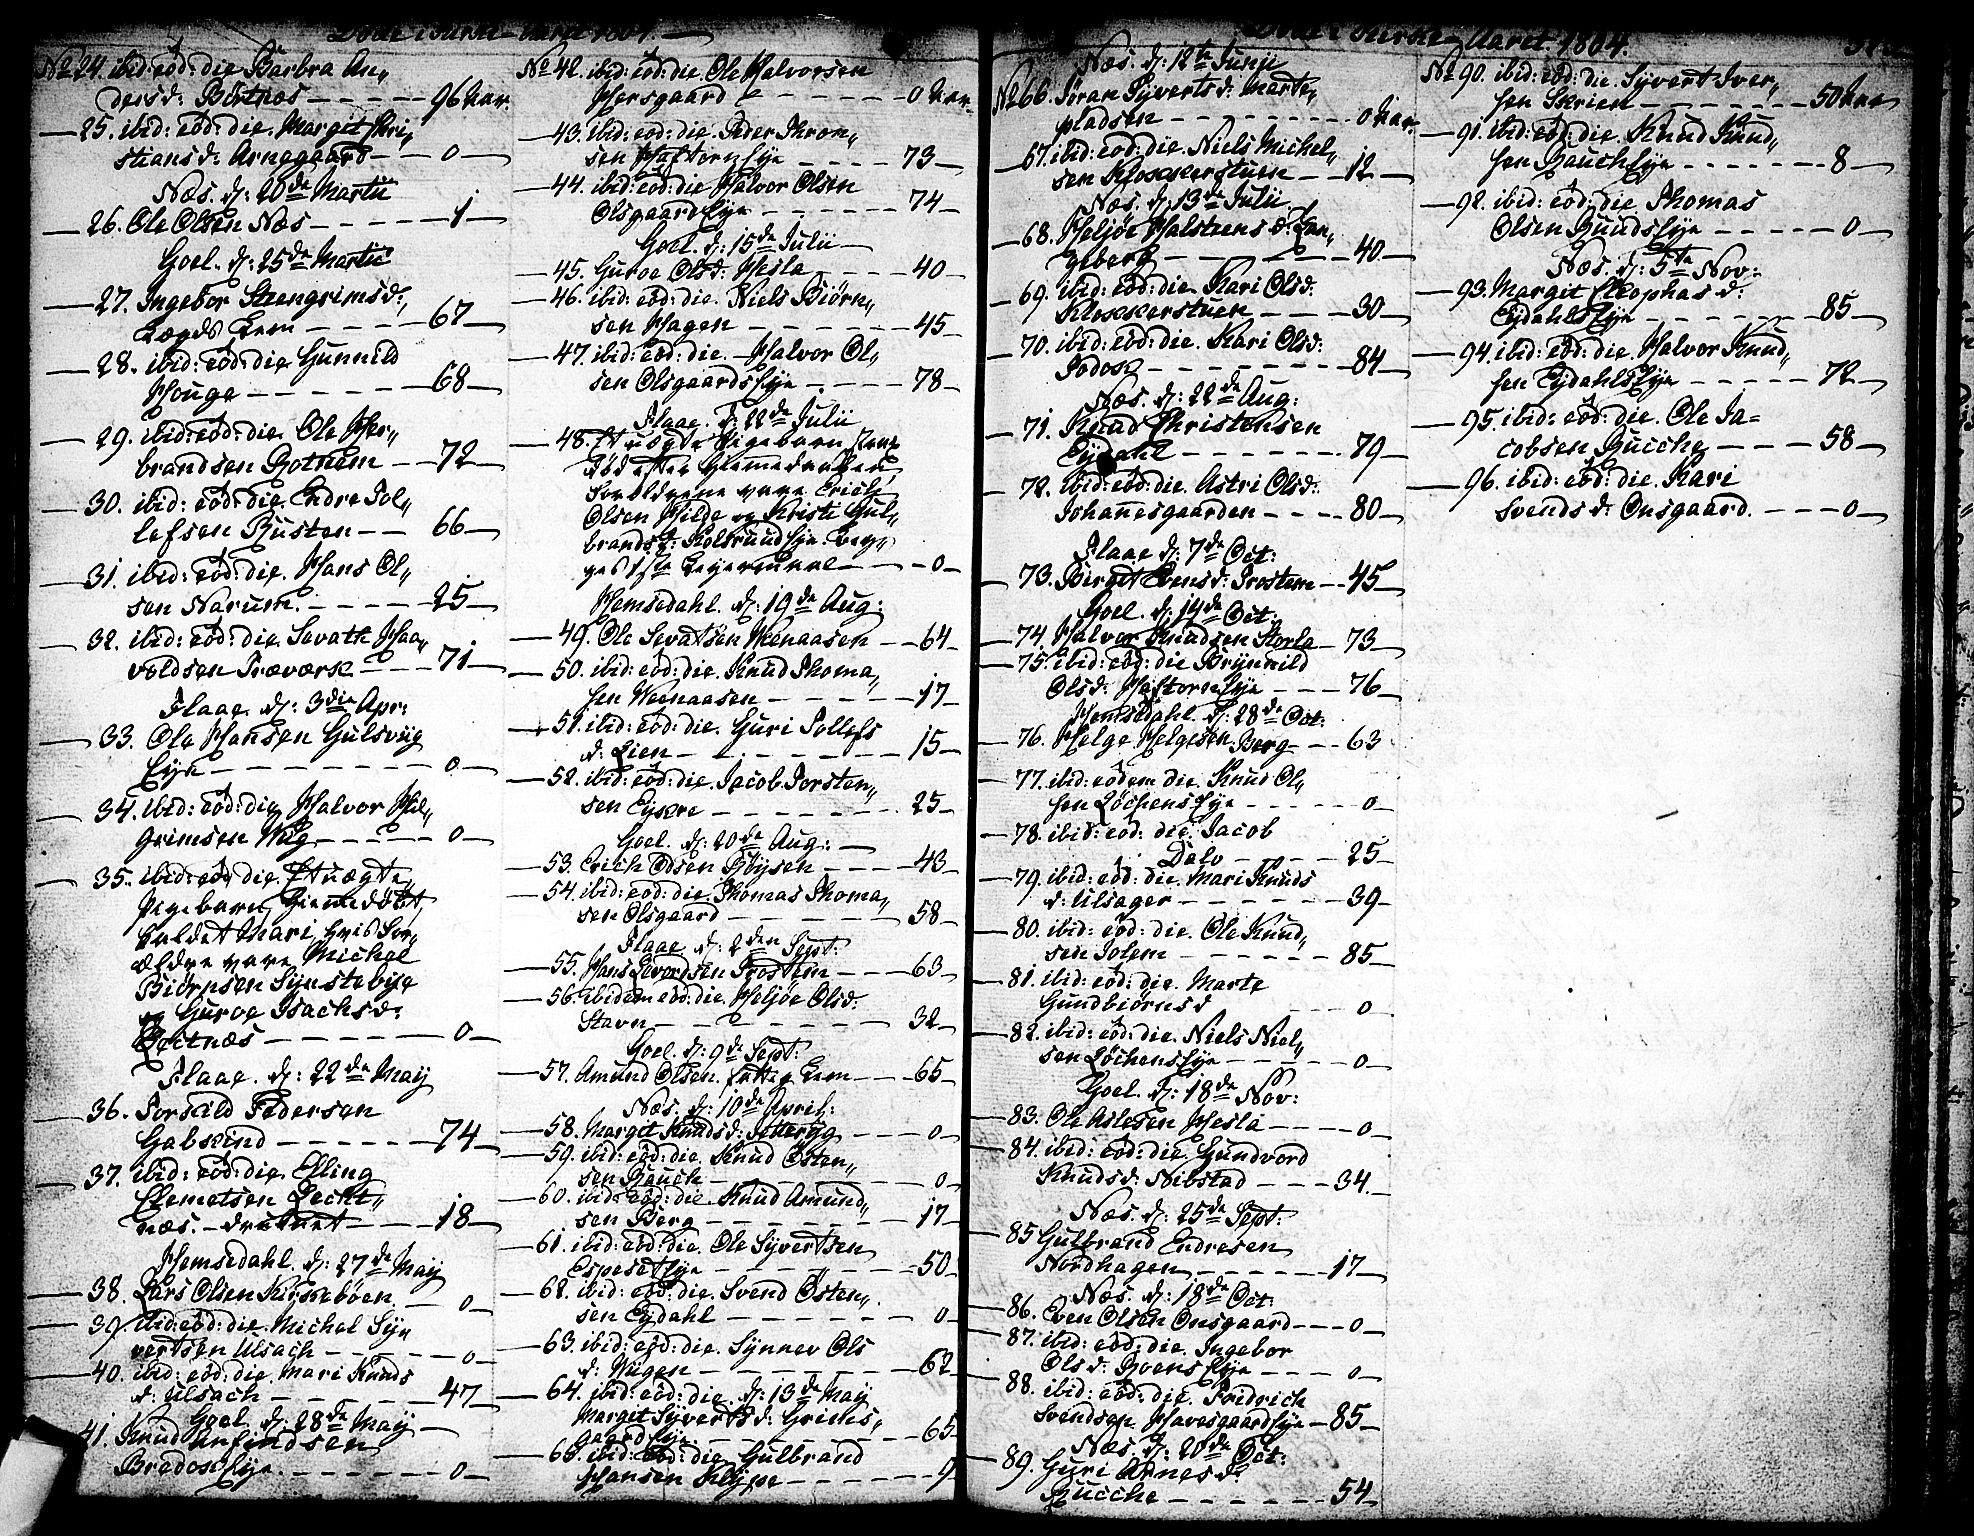 Aaret 1804.
No 24. ibid: eod: die Barbra An„
dersd: Börtnæs — 96 Aar.
25. ibid: eod: die. Margit Chri„
stiansd: Arnegaard — 0
Næs. d: 20de Martii
26. Ole Olsen Næs — 1
Goel. d: 25de Martii
27. Ingebor Steengrimsd:,
Lægds Lem — 67
28. ibid: eod: die Gunnild
Houge — 68
29. ibid: eod: die. Ole Her„
brandsen Rotnem — 72
30. ibid: eod: die. Endre Tol„
lefsen Rusten — 66
31. ibid: eod: die. Hans Ol„
sen Narum. — 25
32. ibid: eod: die. Sevath Haa„
voldsen Træværk — 71
Flaae. d: 3die Apr:
33. Ole Hansen Gulsviig
Eye — 0
34. ibid: eod: die Halvor Hel„
grimsen Wiig — 0
35. ibid: eod: die. Et uægte
Pigebarn, hiemedöbt,
kaldet Mari, hvis For„
ældre vare Michel
Biörnsen Synstebye
og Guroe Isachsd:
Börtnæs — 0
Flaae. d: 22de May
36. Torkild Pedersen
Gabskind — 74
37. ibid: eod: die. Elling
Clemetsen
næs. — druknet — 18
Hemsedahl. d: 27de May
38. Lars Olsen Kirkebøen — 0
39. ibid: eod: die. Michel Sy„
vertsen Ulsach — 0
40. ibid: eod: die. Mari Knuds
d: Ulsach — 47
Goel. d: 28de May
41. Knud Anfindsen
Bradoks Eye — 0
No 42. ibid: eod: die. Ole Halvorsen
Hersgaard — 0 Aar
43. ibid: eod: die. Peder Thron„
sen Haftorn Eye — 73
44. ibid: eod: die Halvor Olsen
Olsgaard Eye — 74
Goel. d: 15de Julii
45. Guroe Olsd: Hesla — 40
46. ibid: eod: die. Niels Biörn„
sen Hagen — 45
47. ibid: eod: die. Halvor Ol„
sen Olsgaards Eye — 78
Flaae. d: 22de Julii
48. Et uægte Pigebarn,
död efter hiemedaaben
Forældrene vare Erich
Olsen Hilde og Kristi Gul„
brandsd: Kolsrud Eye. Beg„
ges 1ste Leyermaal — 0
Hemsedahl. d: 19de Aug:
49. Ole Sevatsen Weenaasen — 64
50. ibid: eod: die. Knud Thoma„
sen Weenaasen — 17
51. ibid: eod: die. Guri Tollefs
d: Lien — 15
52. ibid: eod: die. Jacob Torsten„
sen Eykre — 25
Goel. d: 20de Aug:
53. Erich Olsen Röysen — 43
54. ibid: eod: die. Thomas Thoma„
sen Olsgaard — 58
Flaae d: 2den Sept:
55. Hans Levordsen Trostem — 63
56. ibidem eod: die. Heljöe Olsd:
Stavn — 32
Goel. d: 9de Sept:
57. Amund Olsen. fattig Lem — 65
Næs. d: 10de April:
58. Margit Knudsd: — 0
59. ibid: eod: die. Knud Östen„
sen Bauch — 0
60. ibid: eod: die. Knud Amund„
sen Berg — 17
61. ibid: eod: die. Ole Syvertsen
Espeset Eye — 50
62. ibid: eod: die. Svend Östen„
sen Eydahl — 0
63. ibid: eod: die. Synnev Ols
d: Wiigen — 62
64. ibid: eod: die. d: 13de May
Margit Syvertsd: Grims„
gaard Eye — 65
65. ibid: eod: die. Gulbrand
Hansen Klype — 9
Aaret 1804.
Næs. d: 12te Junii
No 66. Jöran Syvertsd: Marte„
pladsen — 0 Aar.
67. ibid: eod: die. Niels Michel„
sen Klokkerstuen — 12
Næs. d: 13de Julii.
68. Heljöe Halsteens d: Lan„
geberg — 40
69. ibid: eod: die. Kari Olsd:
Klokkerstuen — 30
70. ibid: eod: die. Kari Olsd:
Jodok — 84
Næs. d: 22de Aug:
71. Knud Christensen
Eydahl — 79
72. ibid: eod: die. Astri Olsd:
Johannesgaarden — 80
Flaae d: 7de Oct:
73. Birgit Evensd: Trostem — 45
Goel. d: 14de Oct:
74. Halvor Knudsen Storla — 73
75. ibid: eod: die Brynnild
Olsd: Haftorn Eye — 76
Hemsedahl. d: 28de Oct:
76. Helge Helgesen Berg — 63
77. ibid: eodem die. Knud Ol„
sen Löchens Eye — 0
78. ibid: eod: die. Jacob
Dalv — 25
79. ibid: eod: die. Mari Knuds
d: Ulsager — 39
80. ibid: eod: die. Ole Knud„
sen Jolem — 85
81. ibid: eod: die. Marte
Gundbiörnsd — 0
82. ibid: eod: die. Niels Niel„
sen Löchens Eye — 0
Goel. d: 18de Nov:
83. Ole Aslesen Hesla — 0
84. ibid: eod: die. Gundvord
Knudsd: Nibstad — 34.
Næs. d: 25de Sept:
85 Gulbrand Endresen
Nordhagen — 17
Næs. d: 18de Oct:
86. Even Olsen Onsgaard — 0
87. ibid: eod: die. Ingebor
Olsd: Roens Eye — 0
88. ibid: eod: die. Fridrich
Svendsen Havesgaard Eye — 85
Næs. d: 20de Oct:
89. Guri Arnesd:
Rucche — 54
No 90. ibid: eod: die. Syvert Iver„
sen Skrien — 50 Aar
91. ibid: eod: die. Knud Knud„
sen Bauch Eye — 8
92. ibid: eod: die Thomas
Olsen Ruuds Eye — 0
Næs. d: 5te Nov:
93. Margit Cleophas d:
Eydahls Eye — 85
94. ibid: eod: die. Halvor Knud„
sen Eydahls Eye — 72
95. ibid: eod: die. Ole Ja=
cobsen Rucche — 58
96. ibid: eod: die. Kari
Svends d: Onsgaard. — 0